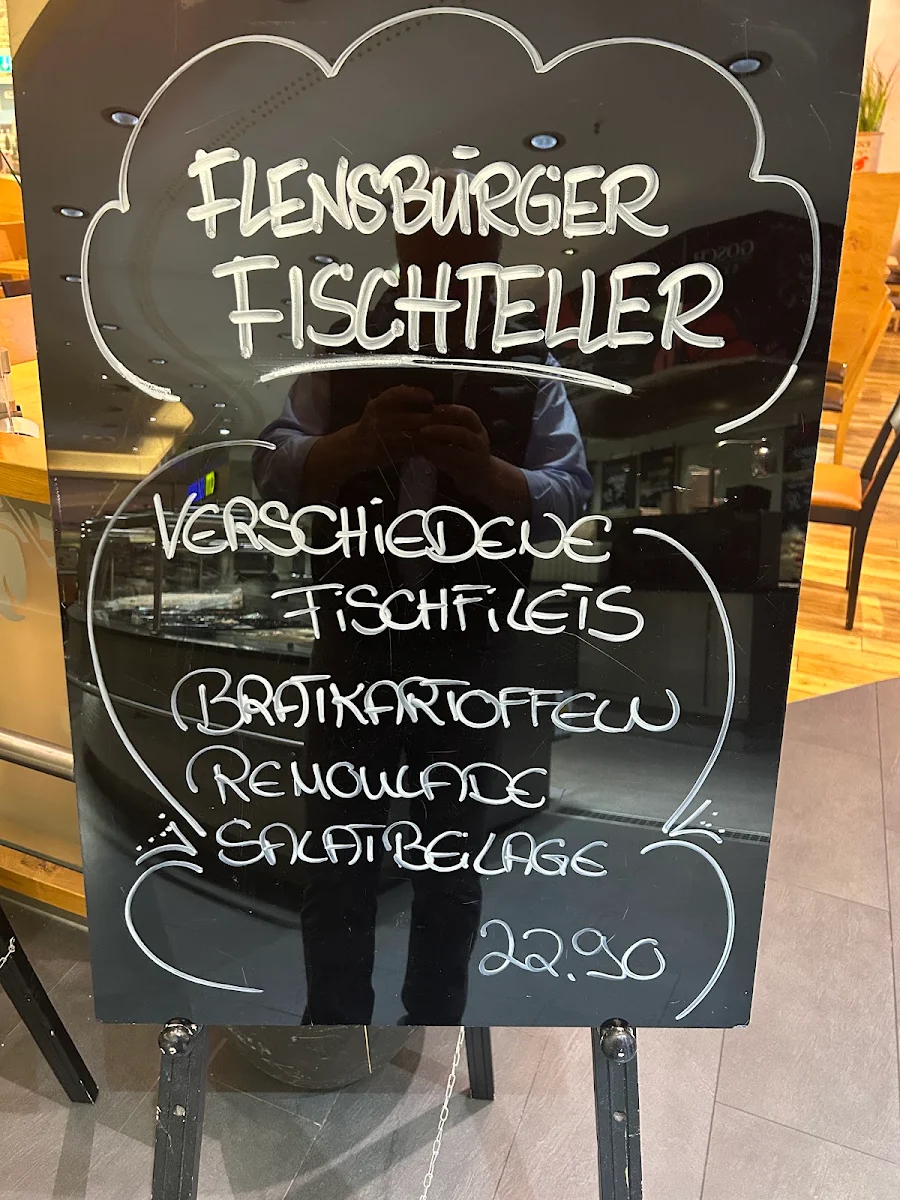 FLENSBURGER
FISCHTELLER
VERSCHiEDENE
FiSCHFiLETS
BRATKARTOFFELN
REMOULADE
SALATBEiLAGE
22.90